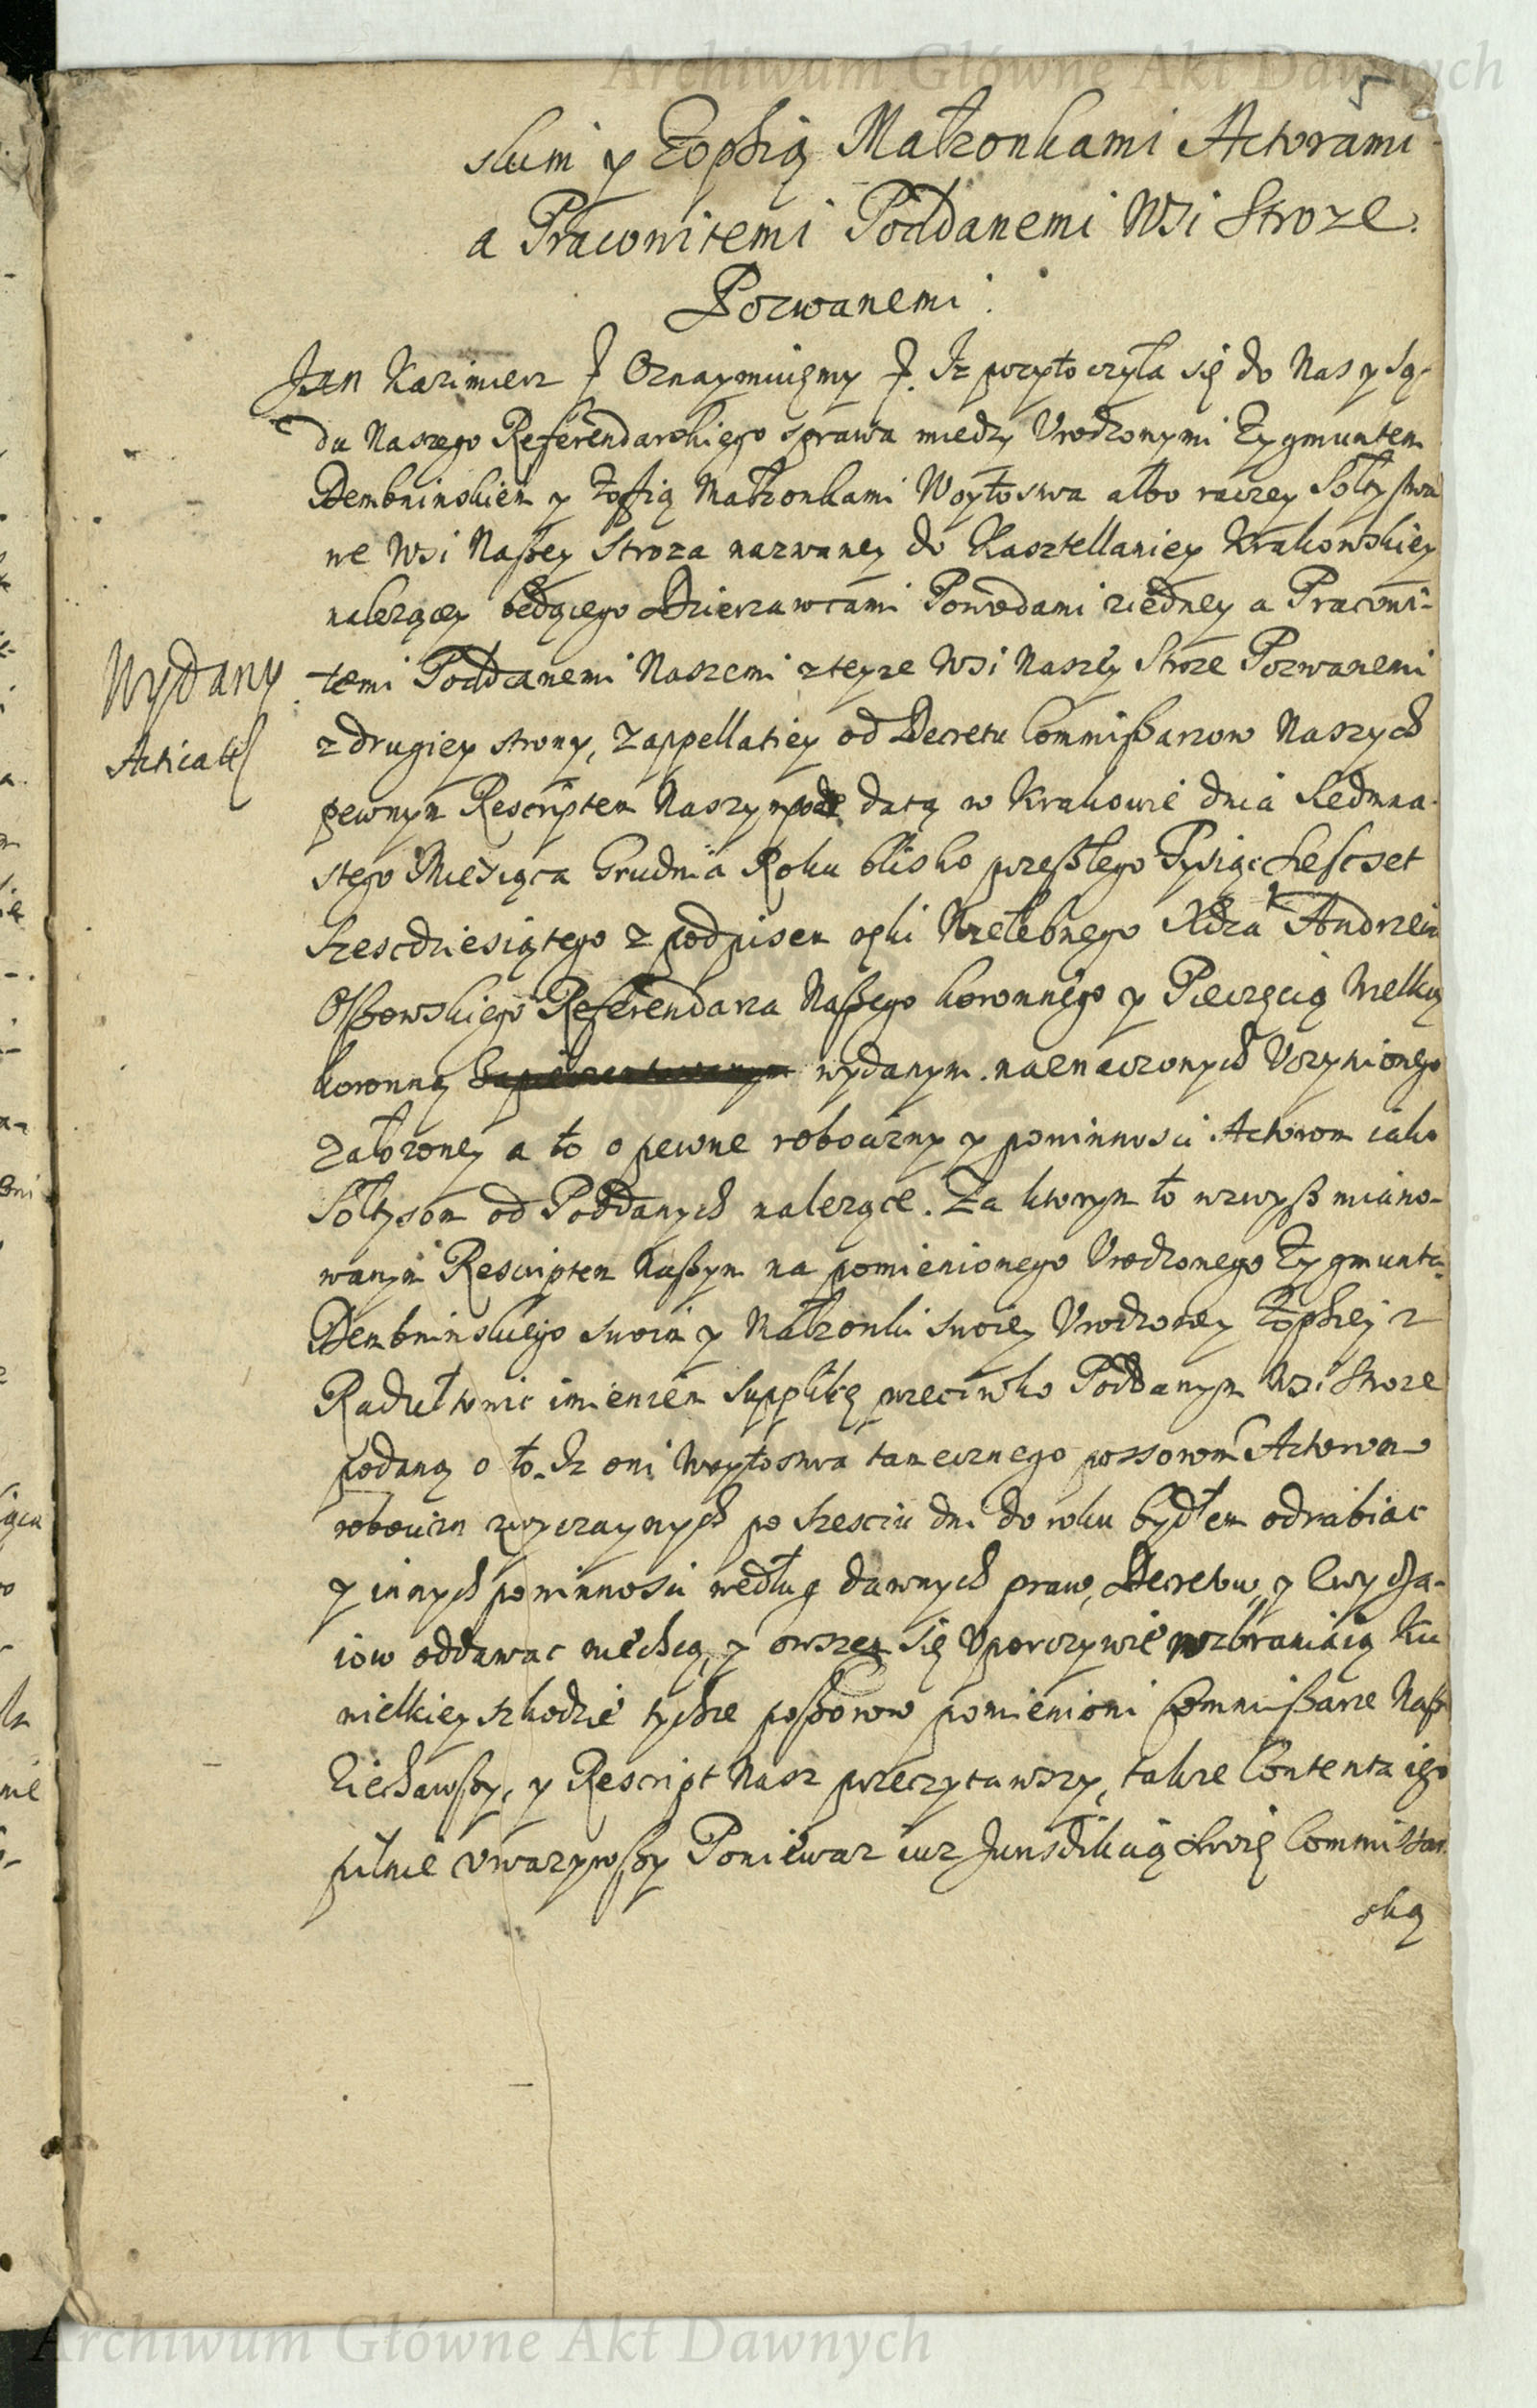 5
skim y Zophią Małzonkami Actorami
a Pracowitemi Poddanemi Wsi Stroze
Pozwanemi
Jan Kazimierz Oznaymuięmy Iz przytoczyła się do Nas y Są-
du Naszego Referendarskiego sprawa miedzy Vrodzonymi Zygmuntem
Dembninskiem y Zofią Małzonkami Woytostwa albo raczey Sołtystwa
we Wsi Naszey Stroza nazwaney do Kasztellaniey Krakowskiey
nalezący będącego Dzierzawcami Powodami ziedney a Pracowi-
Wydany
temi Poddanemi Naszemi zteyze Wsi Naszey Stroze Pozwanemi
Acticat
z drugiey strony, Zappellatiey od Decretu Commißarzow Naszych
pewnym Rescriptem Naszym pod datą w Krakowie dnia Siedmna-
stego Miesiąca Grudnia Roku blisko przeszłego Tysiąc Szescset
szescdziesiątego z podpisem ręki Wielebnego Xdza Andrzeia
Olszowskiego Referendarza Naszego koronnego y Pieczęcią Wielką
koronną wydanym naznaczonych Vczynionego
Załozoney a to o pewne robocizny y powinnosci Actorom iako
Sołtysom od Poddanych nalezące. Za ktorym to wzwyß miano-
wanym Rescriptem Naszym na pomienionego Vrodzonego Zygmunta
Dembninskiego swoim y Małzonki swoiey Vrodzoney Zophiey z
Radułtowic imieniem Supplikę przeciwko Poddanym Wsi Stroze
podaną o to. Iz oni Woytostwa tamecznego possorom Actorom
robocizn zwyczaynych po szesciu dni do roku bydłem odrabiac
y innych powinnosci według dawnych praw, Decretow, y Zwycza-
iow oddawac niechcą, y owszem się Vporczywie wzbraniaią Ku
wielkiey szkodzie tychze poßorow pomienioni Commißarze Nasi
Ziechawszy, y Rescript Nasz przeczytawszy, takze Contenta iego
pilnie vwazywszy Poniewaz iuz Jurisdikcią Swoię Commissar-
ską
Archiwum Główne Akt Dawnych
Archiwum Główne Akt Dawnych